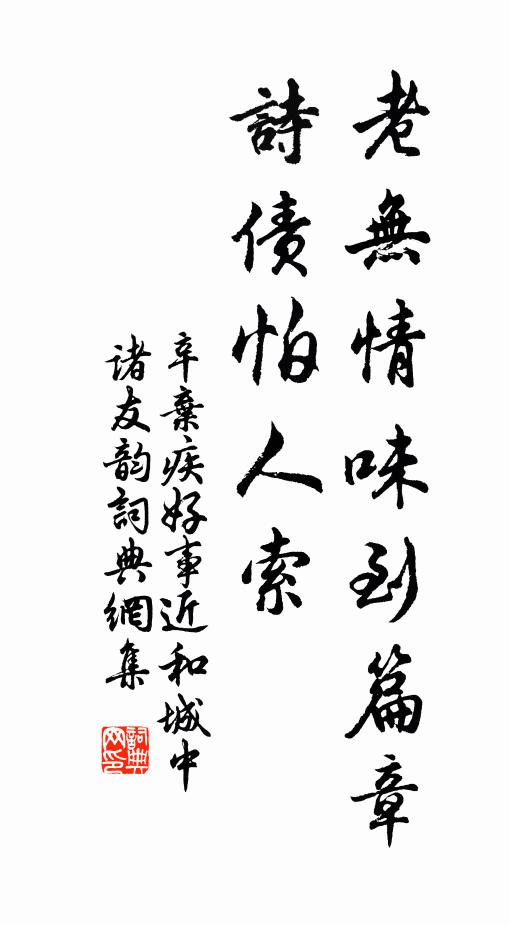 老無情味到篇章
詩債怕人索
辛棄疾好事近和城中
诸友韵詞典網集
詞典网印